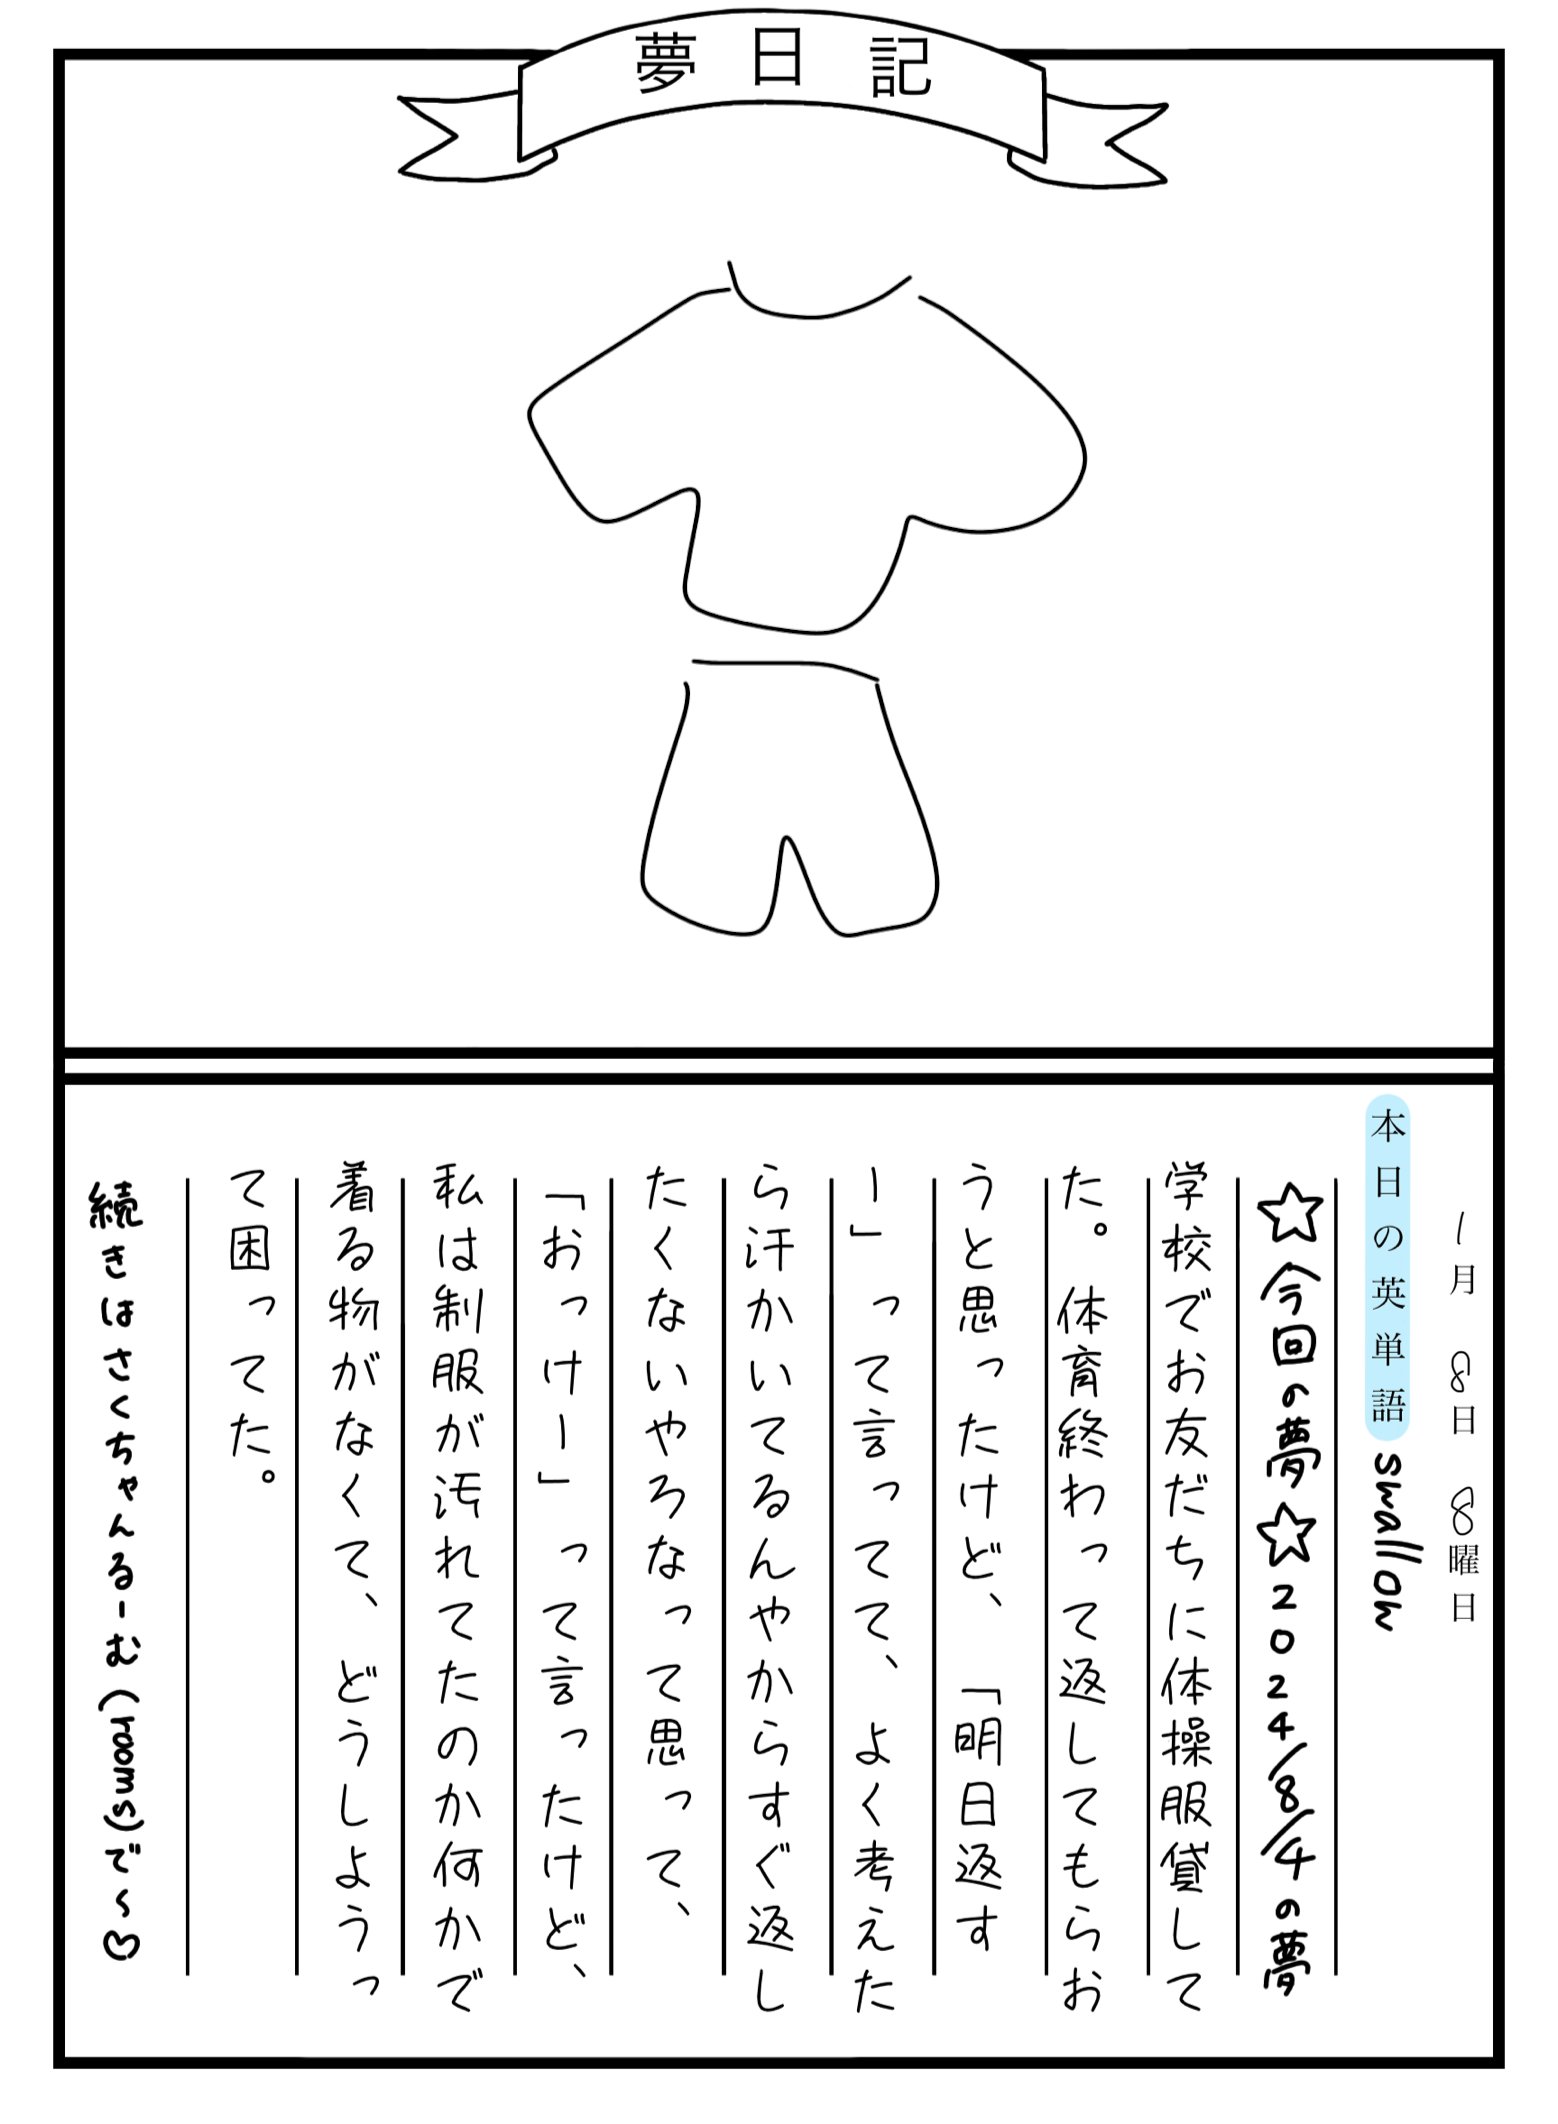 夢日記
1月 8日 8曜日
本日の英単語 swallow
☆今回の夢☆2024/8/4の夢
学校でお友だちに体操服貸して
た。体育終わって返してもらお
うと思ったけど、「明日返す
ー」って言ってて、よく考えた
ら汗かいてるんやからすぐ返し
たくないやろなって思って、
「おっけー」って言ったけど、
私は制服が汚れてたのか何かで
着る物がなくて、どうしようっ
て困ってた。
続きはさくちゃんるーむ(rooms)で〜♡